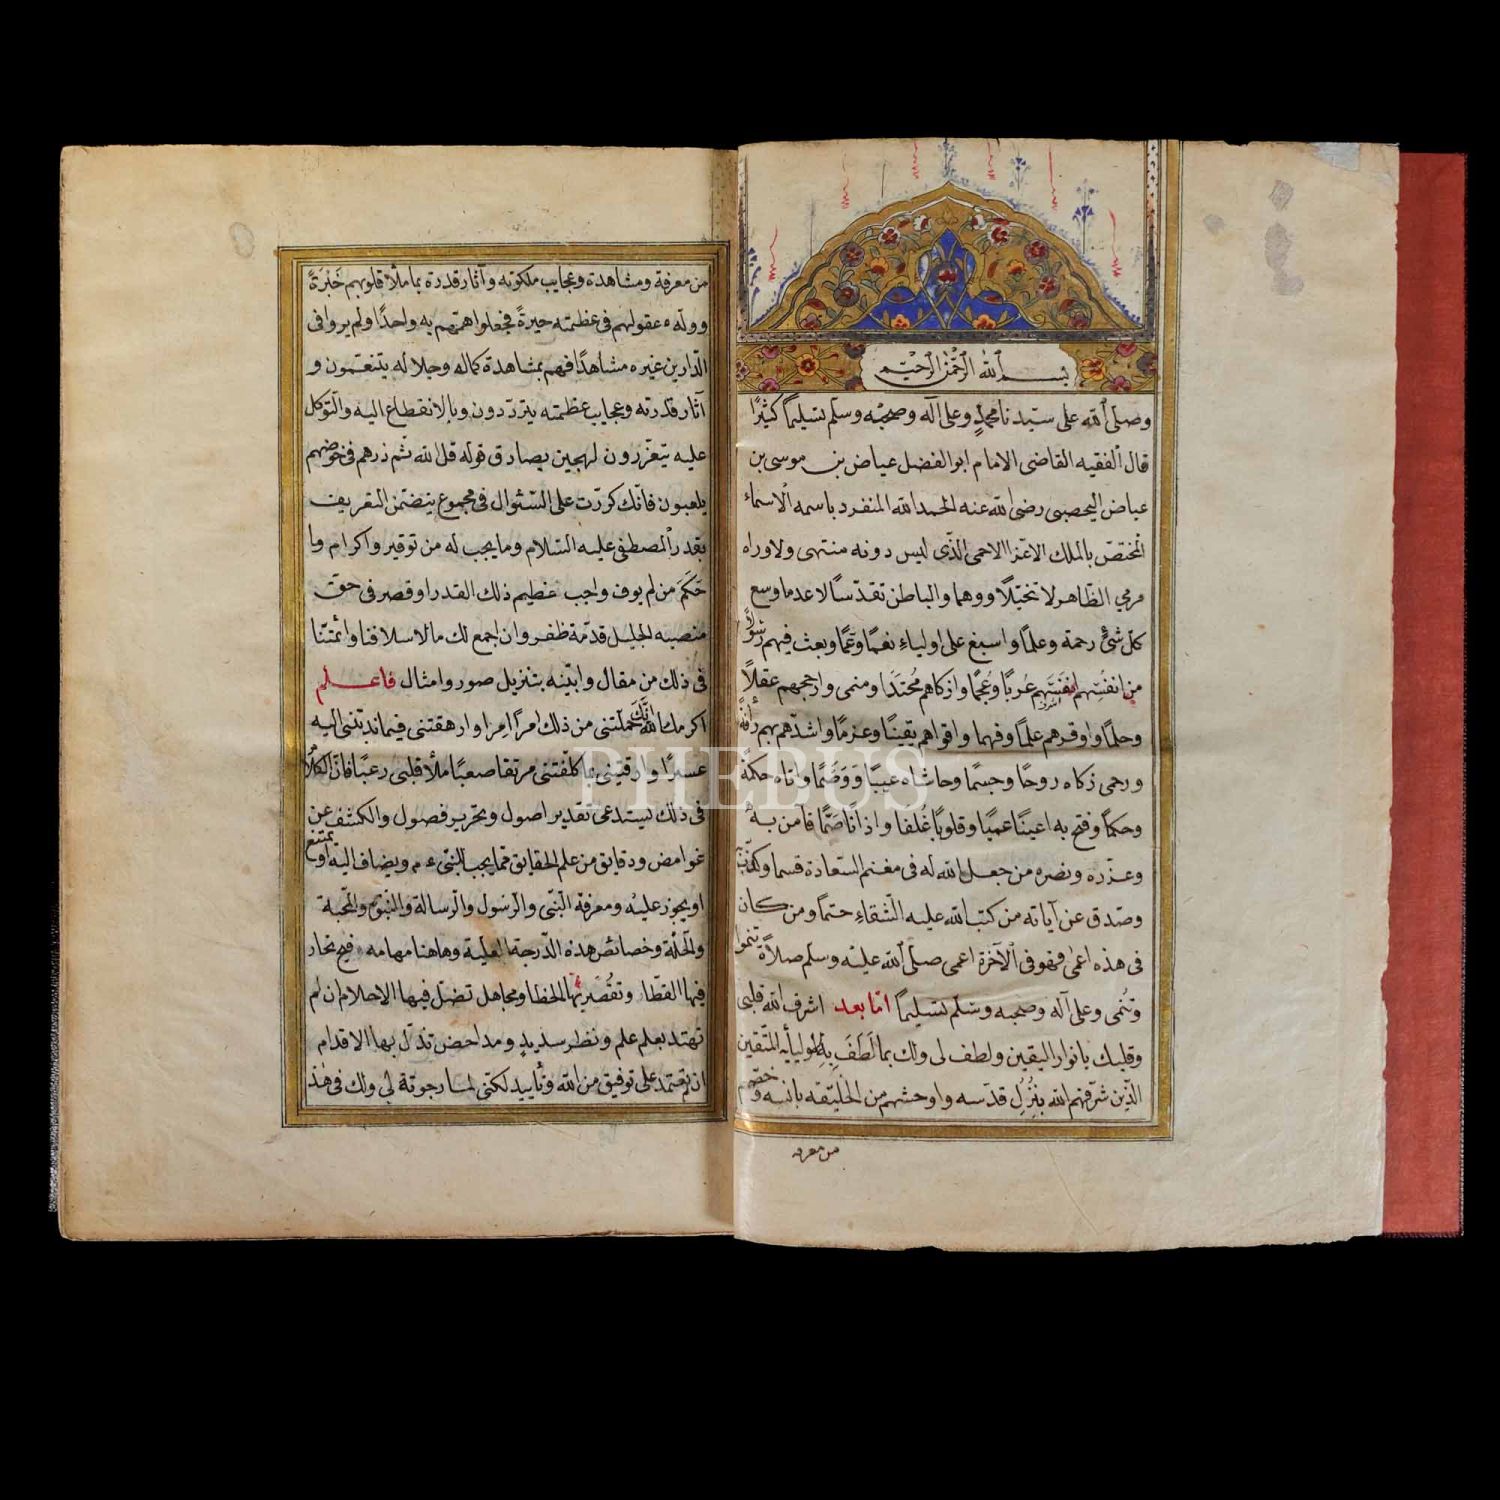 بسم الله الرحمن الرحيم
وصلى الله على سيدنا محمد وعلى آله وصحبه وسلم تسليما كثيرًا
قال الفقيه القاضى الامام ابو الفضل عياض بن موسى بن
عياض اليحصبى رضى الله عنه الحمد لله المنفرد باسمه الاسماء
المختصّ بالملك الاعزّ الاحمى الذّى ليس دونه منتهى ولا وراه
مرمي الظّاهر لا تخيّلًا ووهما والباطن تقدّسًا لا عدما وسع
كلّ شئ رحمة وعلمًا واسبغ على اولياءِ نعمًا وعمًا وبعث فيهم رسولًا
من انفسِهم انفَسَهم عُربًا وعُجمًا وازكاهم مُحتدًا ومنمى وارجحهم عقلًا
وحلمًا واوفرهم علمًا وفهما واقواهم يقينًا وعزمًا واشدّهم بهم رأفة
ورحمى زكاه روحًا وجسمًا وحاشاه عيبًا ووصمًا واتاه حكمة
وحكمًا وفتح به اعينًا عميًا وقلوبًا غُلفا واذانًا صمًّا فامن به
وعزّره ونصره من جعل الله له فى مغنم السّعادة قسما وكذّب
وصدق عن آياته من كتب الله عليه الشّقاء حتمًا ومن كان
فى هذه اعمٰى فهو فى الآخرة اعمى صلى الله عليه وسلم صلاة تنموا
وتُنمى وعلى آله وصحبه وسلم تسليمًا امّا بعد اشرق الله قلبى
وقلبك بانوار اليقين ولطف لى ولك بما لَطَفَ به لاوليأيه المتّقين
الذّين شرّفهم الله بنُزُلِ قدسه واوحشهم من الخليقه بانسه وخصهم
من معرفه
من معرفة ومشاهدة وعجايب ملكوته وآثار قدرة بما ملأ قلوبهم خَبْرَةً
وولّه عقولهم فى عظمته حيرةً فجعلوا همّهم به واحدًا ولم يروا فى
الدّارين غيره مشاهدًا فهم بمشاهدة كماله وجلاله يتنعّمون و
آثار قدرته وعجايب عظمته يتردّدون وبالانقطاع اليه والتّوكل
عليه يتعزّزون لهجين بصادق قوله قل الله ثم ذرهم فى خوضهم
يلعبون فانّك كرّرت على السّئوال فى مجموع يتضمّن التعريف
بقدر المصطفى عليه السّلام وما يجب له من توقير واكرام وما
حَكَمَ من لم يوف واجب عظيم ذلك القدر او قصر فى حقّ
منصبه الجليل قدمة ظفر وان اجمع لك ما لاسلافنا وائمّتنا
فى ذلك من مقال وابيّنه بتنزيل صور وامثال فاعلم
اكرمك الله انّك حملتنى من ذلك امرًا اِمرا وارهقتنى فيما ندبتنى اليه
عسرًا وارقيتنى بما كلّفتنى مرتقا صعبًا ملأ قلبى رعبًا فانّ الكلام
فى ذلك يستدعى تقدير اصول وتحرير فصول والكشف عن
غوامض ودقايق من علم الحقايق ممّا يجب للنّبىء م ويضاف اليه او يمتنع
او يجوز عليه ومعرفة النّبى والرّسول والرّسالة والنّبوّة والمحبّة
والخلّة وخصائص هذه الدّرجة العليّة وهاهنا مهامه فيح تحار
فيها القطا وتقُصّر بها الخطا ومجاهل تضلّ فيها الاحلام ان لم
تهتد بعلم علم ونظر سديد ومداحض تذلّ بها الاقدام
ان لم تعتمد على توفيق من الله وتأييد لكنّى لما رجوته لي ولك فى هذ
PHEBUS